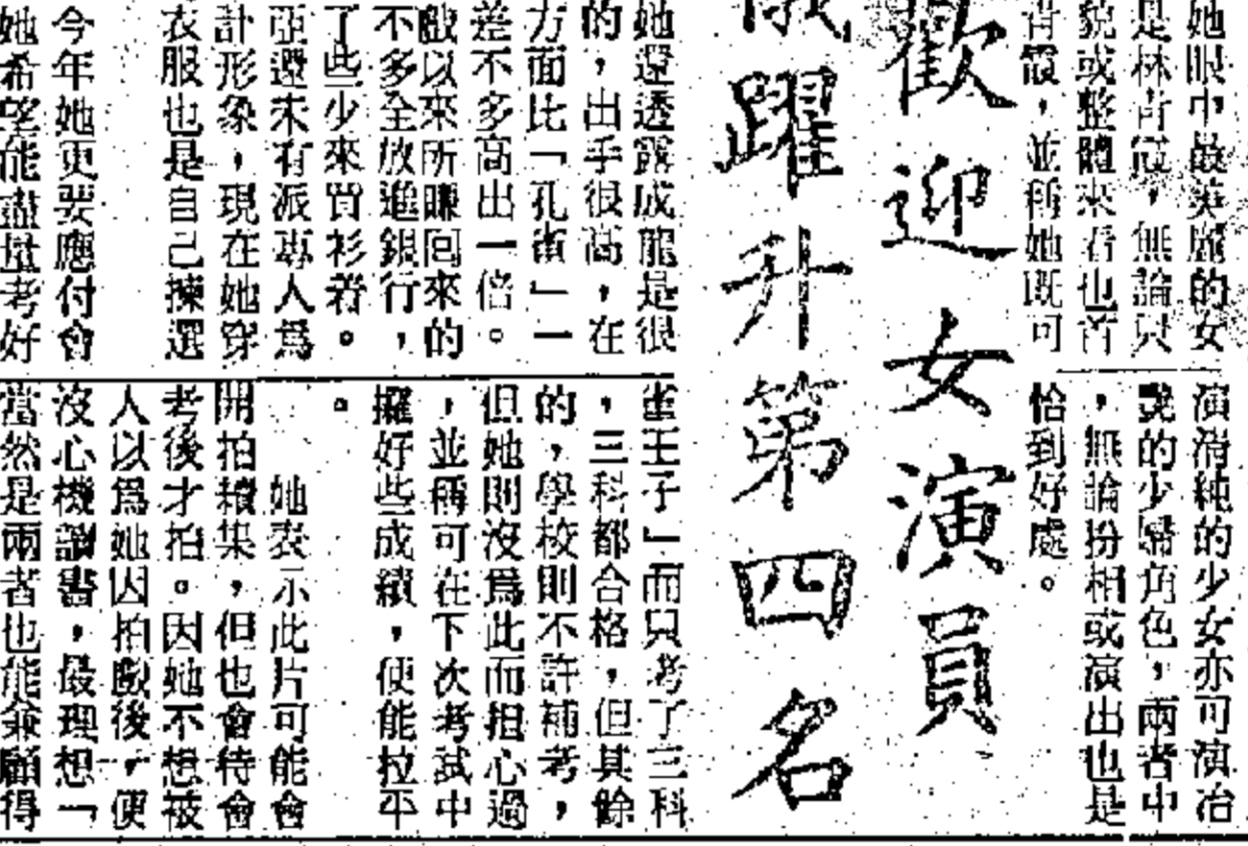 她眼中最美麗的女
是林青霞，無論只
貌或整體來看也首
青霞，並稱她既可
演清純的少女亦可演冶
艷的少婦角色，兩者中
，無論扮相或演出也是
恰到好處。
歡迎女演員
躍升第四名
她還透露成龍是很
的，出手很高，在
方面比「孔雀」一
差不多高出一倍。
戲以來所賺回來的
不多全放進銀行，
了些少來買衫着。
亞還未有派專人爲
計形象，現在她穿
衣服也是自己揀選
今年她更要應付會
她希望能盡量考好
雀王子」而只考了三科
，三科都合格，但其餘
的，學校則不許補考，
但她則沒爲此而担心過
，並稱可在下次考試中
攞好些成績，便能拉平
。
她表示此片可能會
開拍續集，但也會待會
考後才拍。因她不想被
人以爲她因拍戲後，便
沒心機讀書，最理想「
當然是兩者也能兼顧得